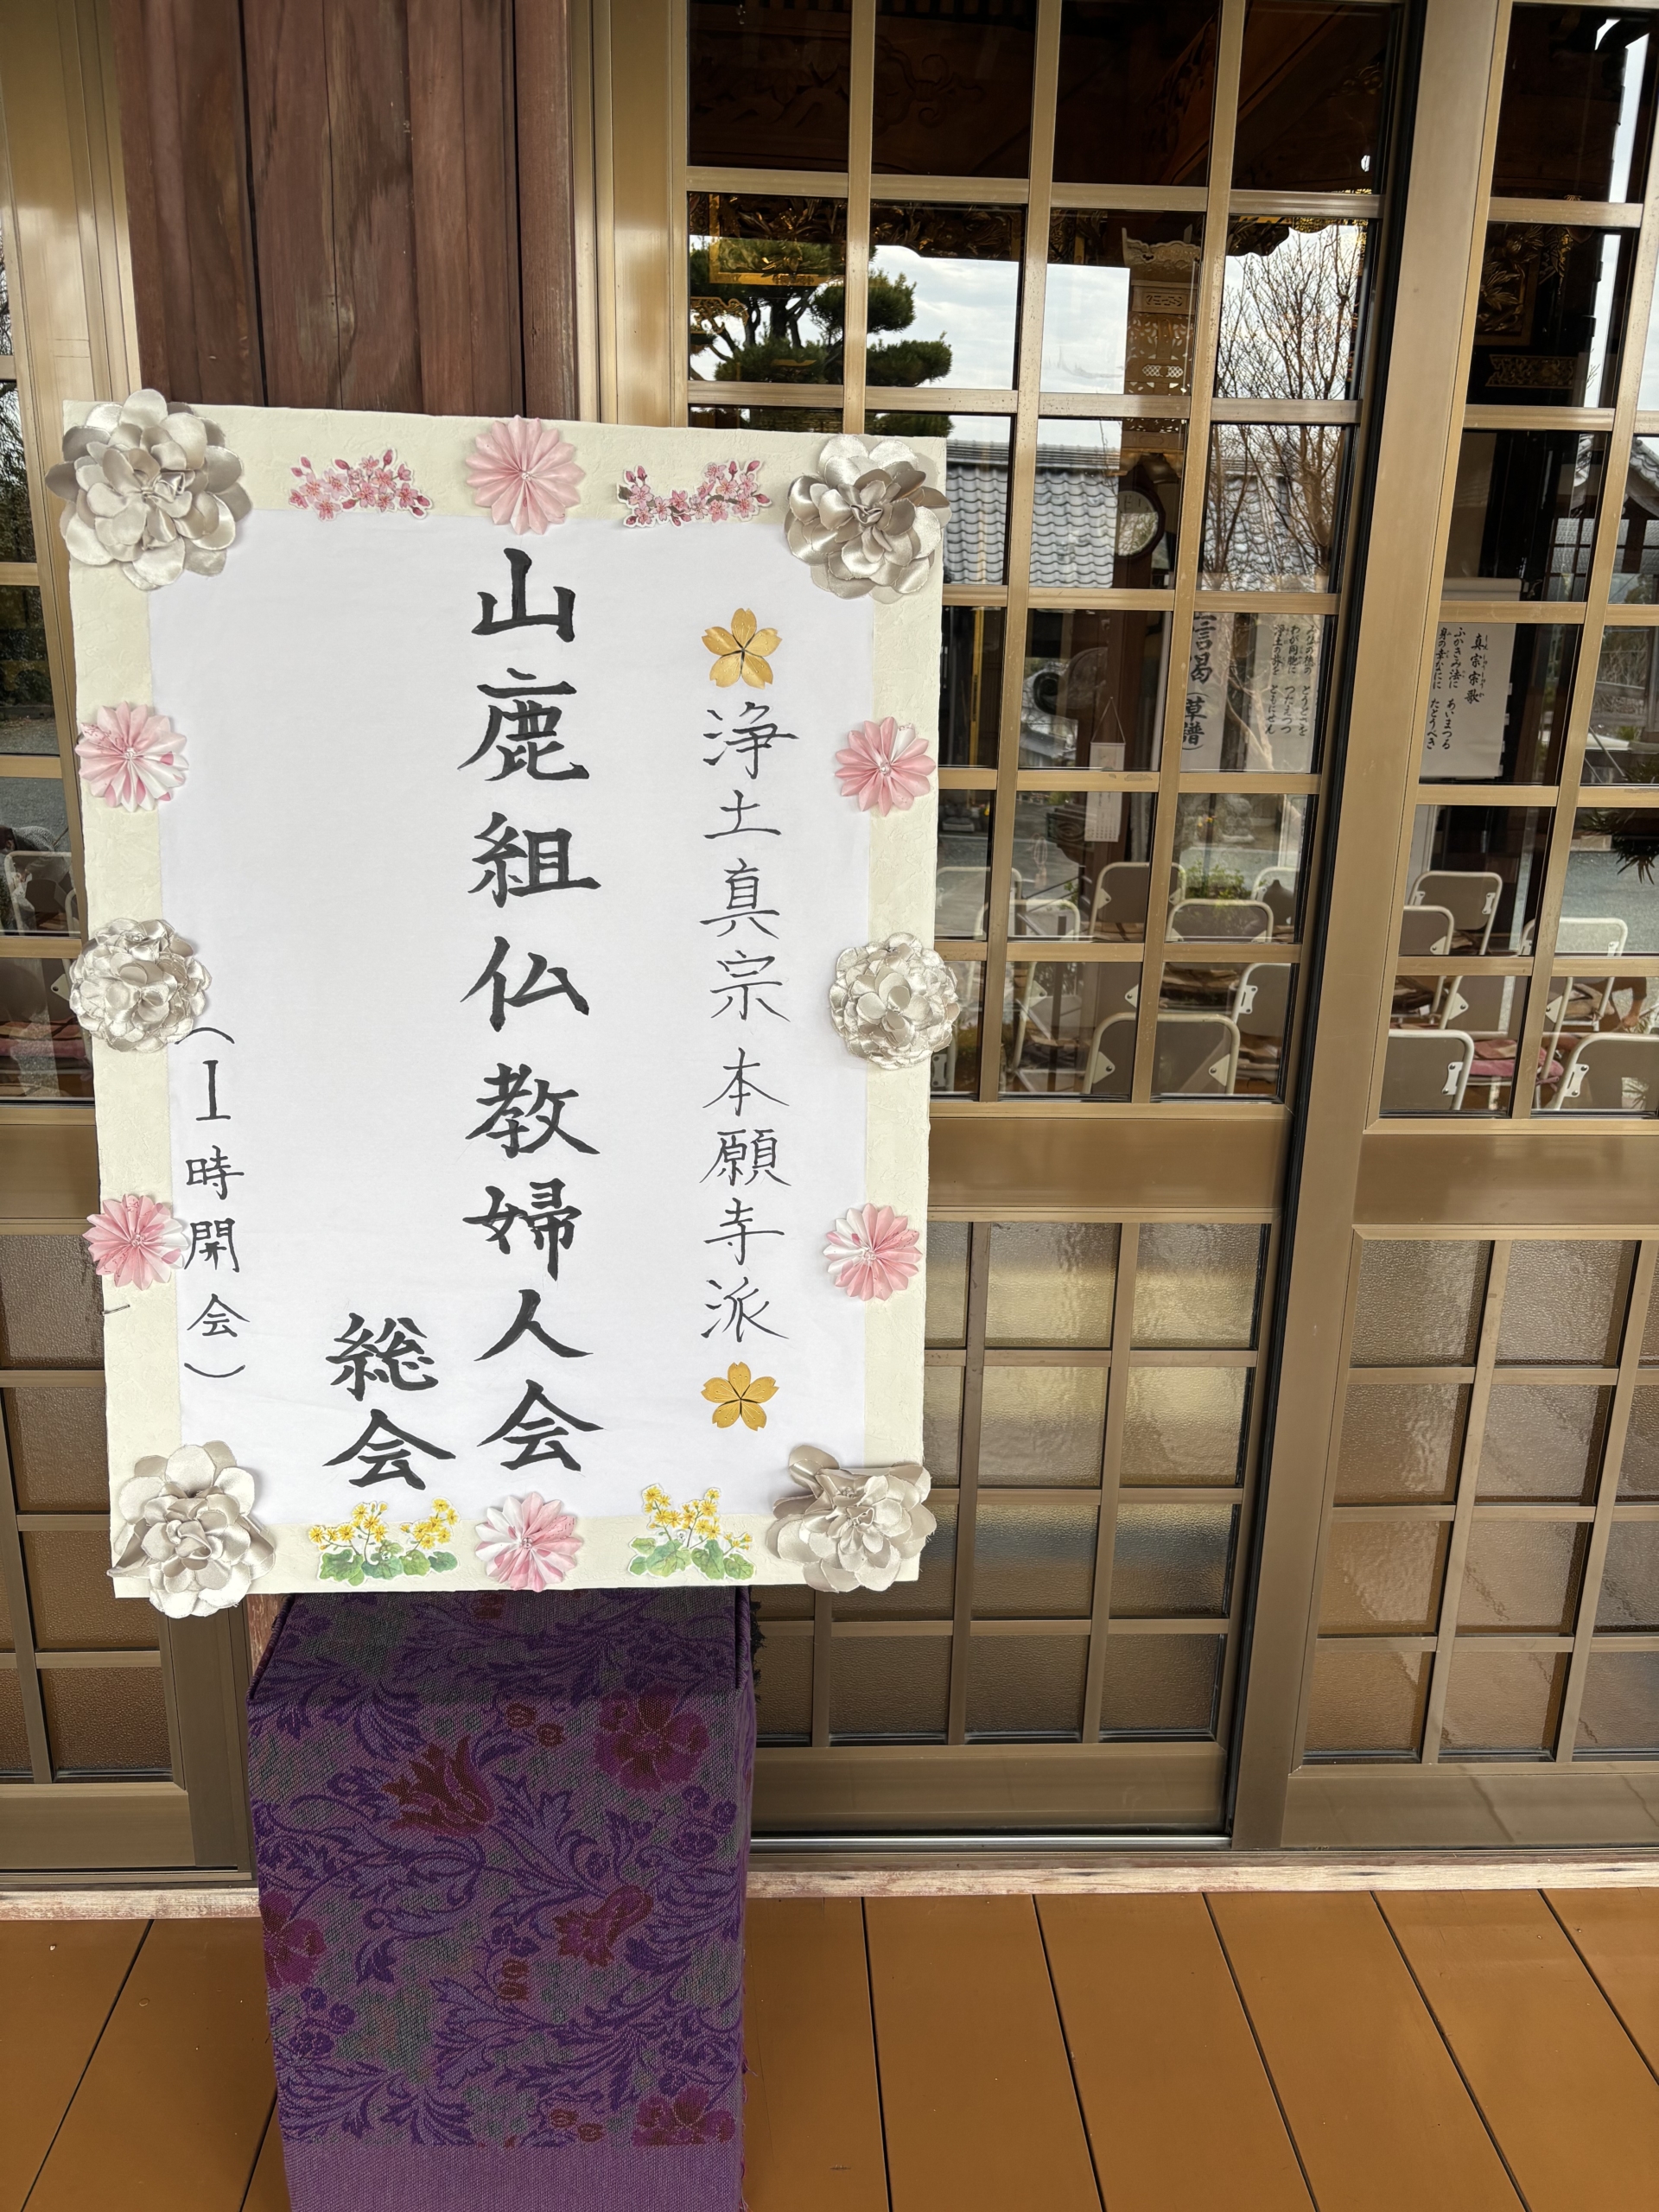 浄土真宗本願寺派
山鹿組仏教婦人会
総会
(1時開会)
真宗宗歌
ふかきみ法に あいまつる
身の幸なにに たとうべき
とうときを
つたえつつ
ともにせん
信偈(草譜)